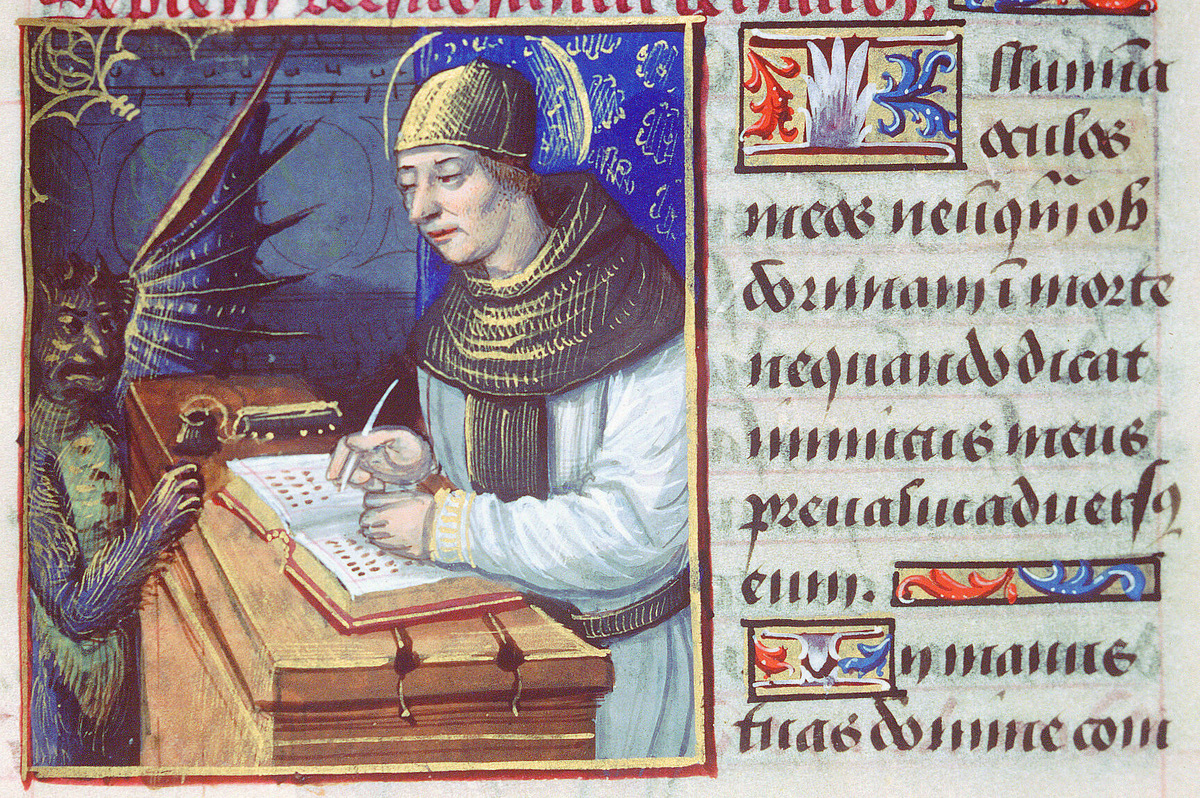 Illumīa
oculos
meos neūq̄m ob
dormiam ī morte
nequando dicat
inimicus meus
preualui aduersꝰ
eum.
In manus
tuas domine com